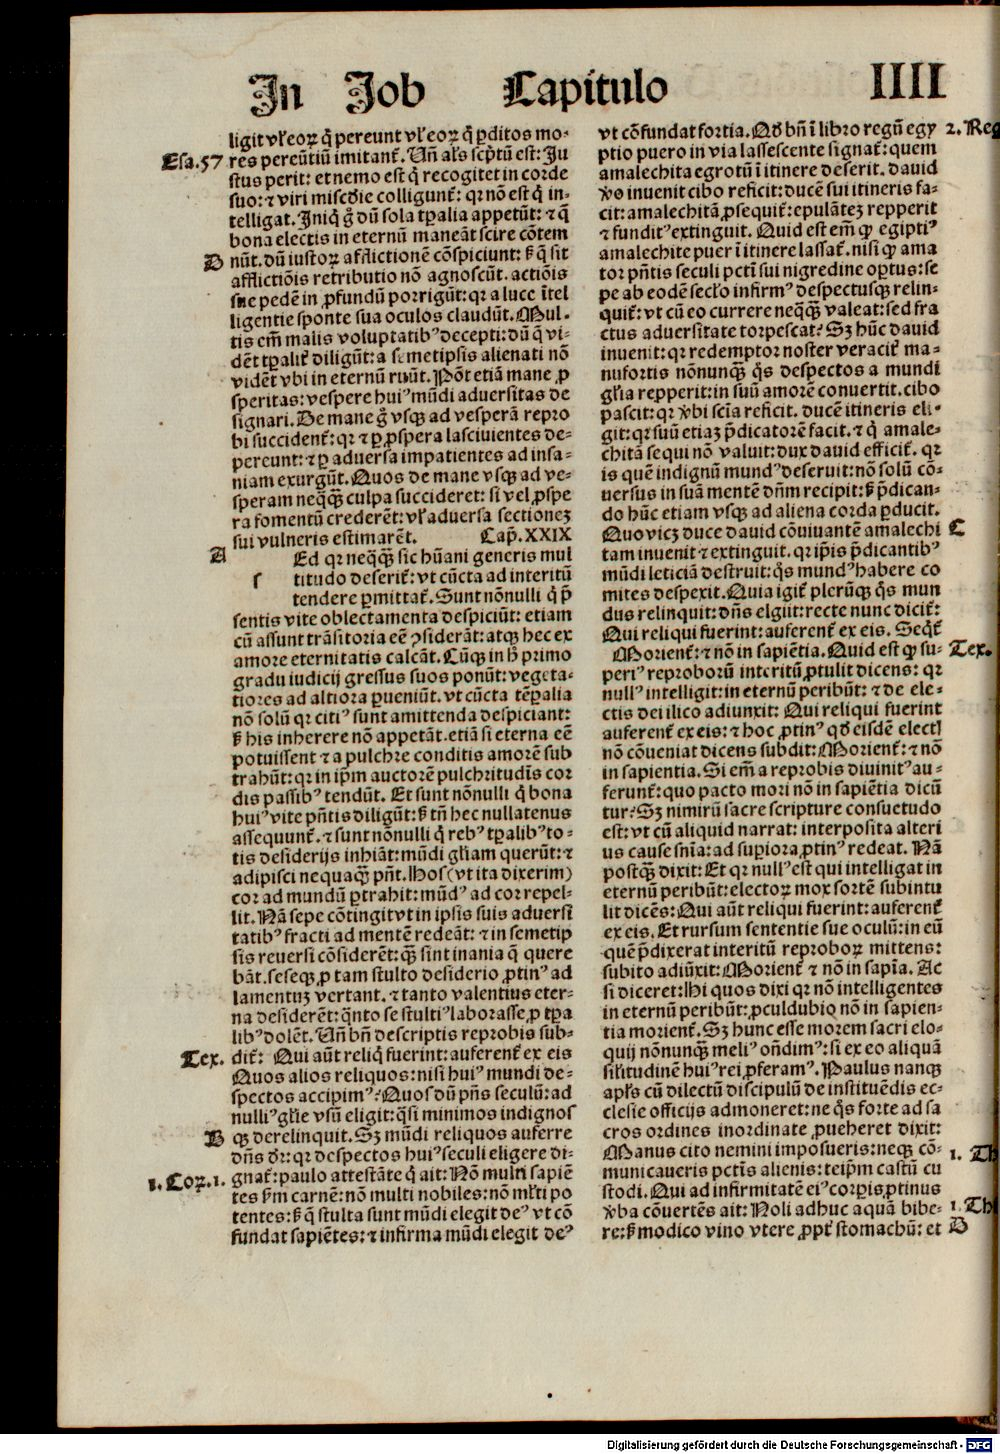 In Job Capitulo IIII
ligit vl' eoꝝ q̄ pereunt vl' eoꝝ q̄ ꝑditos mo-
Esa.57 res pereūtiū imitant᷑. Vn̄ al's scp̄tū est: Ju
stus perit: et nemo est q̇ recogitet in corde
suo: ⁊ viri misc̄die colligunt᷑: qꝛ nō est q̇ in-
telligat. Iniq̇ g̊ dū sola tꝑalia appetūt: ⁊ q̄
bona electis in eternū maneāt scire cōtem
D nūt. dū iustoꝝ afflictionē cōspiciunt: s̄ q̄ sit
afflictiōis retributio nō agnoscūt. actiōis
sue pedē in ꝓfundū porrigūt: qꝛ a luce ītel
ligentie sponte sua oculos claudūt. Mul-
tis em̄ malis voluptatibꝰ decepti: dū q̄ vi-
dēt tꝑalit᷑ diligūt: a semetipsis alienati nō
vidēt vbi in eternū ruūt. Pōt etiā mane ꝓ
speritas: vespere huiꝰ mūdi aduersitas de-
signari. De mane g̊ vsqꝫ ad vesperā repro
bi succident᷑: qꝛ ⁊ ꝑ ꝓspera lasciuientes de-
pereunt: ⁊ ꝑ aduersa impatientes ad insa-
niam exurgūt. Quos de mane vsqꝫ ad ve-
speram neq̄qꝫ culpa succideret: si vel ꝓspe
ra fomentū crederēt: vl' aduersa sectionez
sui vulneris estimarēt. Cap̄. XXIX
A Ed qꝛ neq̄qꝫ sic hūani generis mul
s titudo deserit᷑: vt cūcta ad interitū
tendere ꝑmittat᷑. Sunt nōnulli q̇ p̄
sentis vite oblectamenta despiciūt: etiam
cū assunt trāsitoria eē ꝯsiderāt: atqꝫ hec ex
amore eternitatis calcāt. Cūqꝫ in h̄ primo
gradu iudicij gressus suos ponūt: vegeta-
tiores ad altiora ꝑueniūt. vt cūcta tēꝑalia
nō solū qꝛ citiꝰ sunt amittenda despiciant:
s̄ his inherere nō appetāt. etiā si eterna eē
potuissent ⁊ a pulchre conditis amorē sub
trahūt: qꝛ in ip̄m auctorē pulchritudīs cor
dis passibꝰ tendūt. Et sunt nōnulli q̇ bona
huiꝰ vite pn̄tis diligūt: s̄ tn̄ hec nullatenus
assequunt᷑. ⁊ sunt nōnulli q̇ rebꝰ tꝑalibꝰ to-
tis desiderijs inhiāt: mūdi gl'iam querūt: ⁊
adipisci nequaqꝫ pn̄t. Hos (vt ita dixerim)
cor ad mundū ꝑtrahit: mūdꝰ ad cor repel-
lit. Nā sepe cōtingit vt in ipsis suis aduersi
tatibꝰ fracti ad mentē redeāt: ⁊ in semetip
sis reuersi cōsiderēt: qꝫ sint inania q̄ quere
bāt. seseqꝫ ꝓ tam stulto desiderio ꝓtinꝰ ad
lamentuz vertant. ⁊ tanto valentius eter-
na desiderēt: q̄nto se stultiꝰ laborasse ꝓ tꝑa
libꝰ dolēt. Vn̄ bn̄ descriptis reprobis sub-
Tex. dit᷑: Qui aūt reliq̇ fuerint: auferent᷑ ex eis
Quos alios reliquos: nisi huiꝰ mundi de-
spectos accipimꝰ? Quos dū pn̄s seculū: ad
nulliꝰ gl'ie vsū eligit: q̄si minimos indignos
B qꝫ derelinquit. Sꝫ mūdi reliquos auferre
dn̄s dr̄: qꝛ despectos huiꝰ seculi eligere di-
1. Coꝝ.1. gnat᷑: paulo attestāte q̇ ait: Nō multi sapiē
tes s̄m carnē: nō multi nobiles: nō ml'ti po
tentes: s̄ q̄ stulta sunt mūdi elegit deꝰ vt cō
fundat sapiētes: ⁊ infirma mūdi elegit deꝰ
vt cōfundat fortia. Qd̄ bn̄ ī libro regū egy 2. Reg
ptio puero in via lassescente signat᷑: quem
amalechita egrotū ī itinere deserit. dauid
v̊o inuenit cibo reficit: ducē sui itineris fa-
cit: amalechitā ꝓsequit᷑: epulātez repperit
⁊ funditꝰ extinguit. Quid est em̄ ꝙ egiptiꝰ
amalechite puer ī itinere lassat᷑. nisi ꝙ ama
tor pn̄tis seculi pctī sui nigredine oꝑtus: se
pe ab eodē secl'o infirmꝰ despectusqꝫ relin-
quit᷑: vt cū eo currere neq̄qꝫ valeat: sed fra
ctus aduersitate torpescat? Sꝫ hūc dauid
inuenit: qꝛ redemptor noster veracit᷑ ma-
nufortis nōnunqꝫ q̊s despectos a mundi
gl'ia repperit: in suū amorē conuertit. cibo
pascit: qꝛ v̊bi sc̄ia reficit. ducē itineris eli-
git: qꝛ suū etiaz p̄dicatorē facit. ⁊ q̇ amale-
chitā sequi nō valuit: dux dauid efficit᷑. qꝛ
is quē indignū mundꝰ deseruit: nō solū cō-
uersus in suā mentē dn̄m recipit: s̄ p̄dican-
do hūc etiam vsqꝫ ad aliena corda ꝑducit.
Quo vicz duce dauid cōuiuantē amalechi C
tam inuenit ⁊ extinguit. qꝛ ip̄is p̄dicantibꝰ
mūdi leticiā destruit: q̊s mundꝰ habere co
mites despexit. Quia igit᷑ plerūqꝫ q̊s mun
dus relinquit: dn̄s elgiit: recte nunc dicit᷑:
Qui reliqui fuerint: auferent᷑ ex eis. Seq̄t᷑
Morient᷑: ⁊ nō in sapiētia. Quid est ꝙ su- Tex.
periꝰ reproborū interitū ꝓtulit dicens: qꝛ
nullꝰ intelligit: in eternū peribūt: ⁊ de ele-
ctis dei ilico adiunxit: Qui reliqui fuerint
auferent᷑ ex eis: ⁊ hoc ꝓtinꝰ qd̄ eisdē electī
nō cōueniat dicens subdit: Morient᷑: ⁊ nō
in sapientia. Si em̄ a reprobis diuinitꝰ au-
ferunt᷑: quo pacto mori nō in sapiētia dicū
tur? Sꝫ nimirū sacre scripture consuetudo
est: vt cū aliquid narrat: interposita alteri
us cause sn̄ia: ad suꝑiora ꝓtinꝰ redeat. Nā
postqꝫ dixit: Et qꝛ nullꝰ est qui intelligat in
eternū peribūt: electoꝝ mox sortē subintu
lit dicēs: Qui aūt reliqui fuerint: auferent᷑
ex eis. Et rursum sententie sue oculū: in eū
quē p̄dixerat interitū reproboꝝ mittens:
subito adiūxit: Morient᷑ ⁊ nō in sapīa. Ac
si diceret: Hi quos dixi qꝛ nō intelligentes
in eternū peribūt: ꝓculdubio nō in sapien-
tia morient᷑. Sꝫ hunc esse morem sacri elo-
quij nōnunqꝫ meliꝰ on̄dimꝰ: si ex eo aliquā
sil'itudinē huiꝰ rei ꝓferamꝰ. Paulus nanqꝫ
apl's cū dilectū discipulū de instituēdis ec-
clesie officijs admoneret: ne q̊s forte ad sa
cros ordines inordinate ꝓueheret dixit:
Manus cito nemini imposueris: neqꝫ cō- 1. Th
municaueris pctīs alienis: teip̄m castū cu
stodi. Qui ad infirmitatē eiꝰ corꝑis ꝓtinus
v̊ba cōuertēs ait: Noli adhuc aquā bibe- 1. Th
re: s̄ modico vino vtere ꝓpt᷑ stomachū: et D
Digitalisierung gefördert durch die Deutsche Forschungsgemeinschaft - DFG